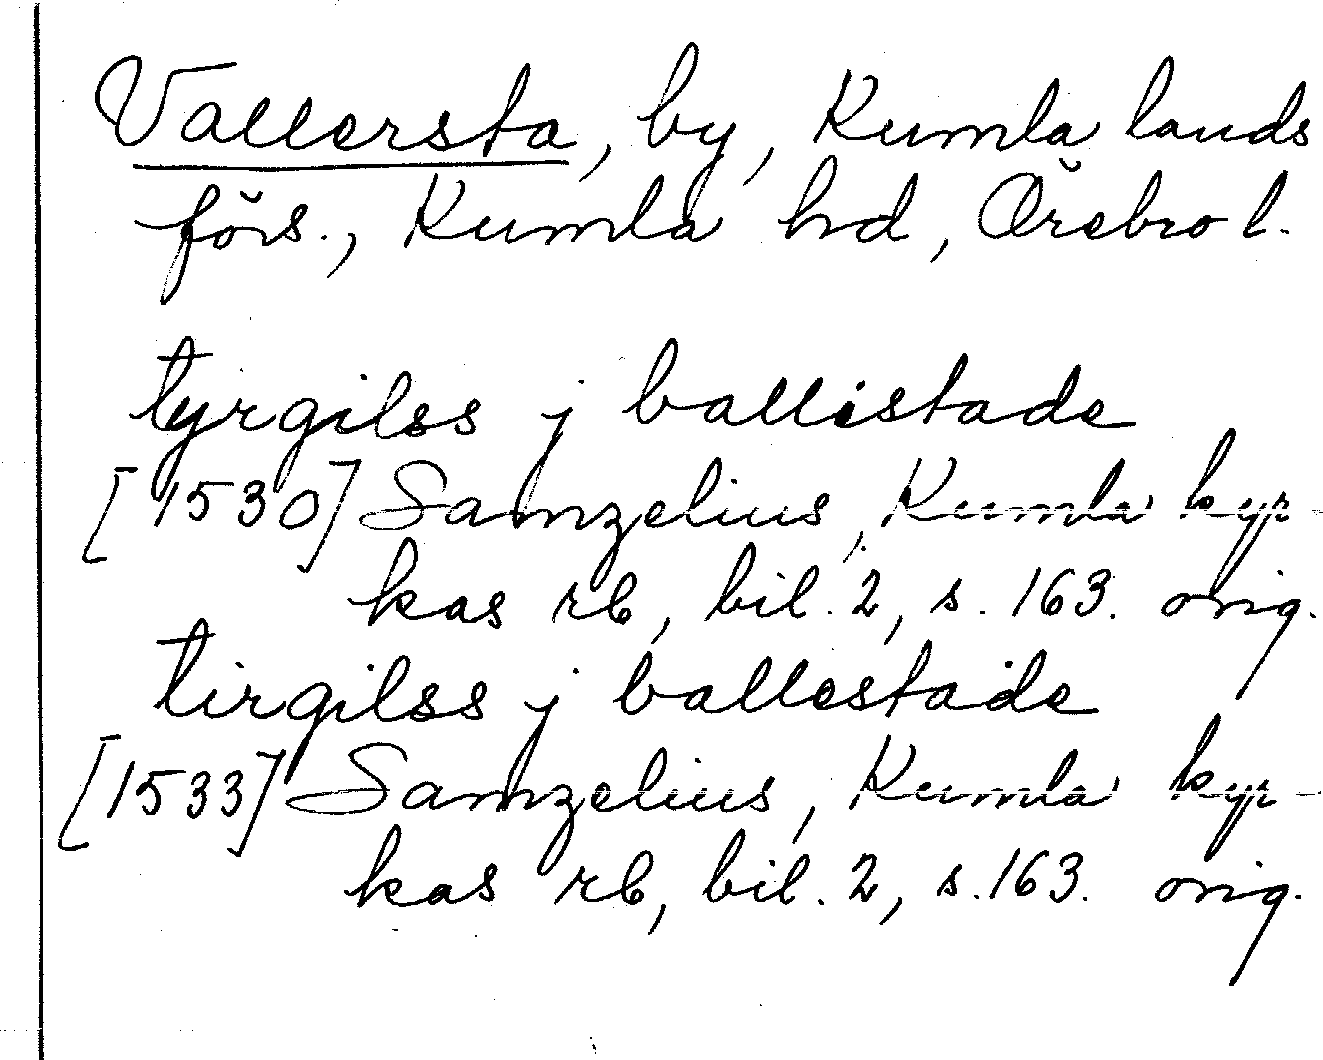 Vallersta, by, Kumla lands
förs., Kumla hd, Örebro l.
tyrgilss j ballistade
[1530] Samzelius, Kumla kyr-
kas rb, bil. 2, s. 163. orig.
tirgilss j ballestade
[1533] Samzelius, Kumla kyr-
kas rb, bil. 2, s. 163. orig.